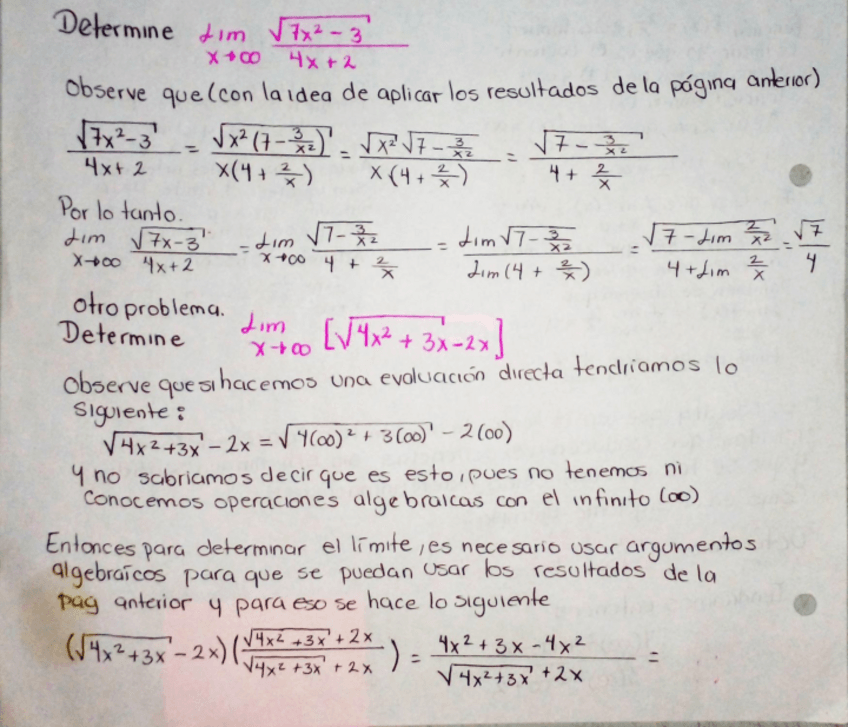 Determine Lim x→∞ √(7x² - 3) / (4x + 2)
Observe que (con la idea de aplicar los resultados de la página anterior)
√(7x² - 3) / (4x + 2) = √(x²(7 - 3/x²)) / (x(4 + 2/x)) = √x² √(7 - 3/x²) / (x(4 + 2/x)) = √(7 - 3/x²) / (4 + 2/x)
Por lo tanto.
Lim x→∞ √(7x - 3) / (4x + 2) = Lim x→∞ √(7 - 3/x²) / (4 + 2/x) = Lim √(7 - 3/x²) / Lim (4 + 2/x) = √(7 - Lim 2/x²) / (4 + Lim 2/x) = √7 / 4
Otro problema.
Determine Lim x→∞ [√(4x² + 3x) - 2x]
Observe que si hacemos una evaluación directa tendriamos lo
Siguiente:
√(4x² + 3x) - 2x = √(4(∞)² + 3(∞)) - 2(∞)
y no sabriamos decir que es esto, pues no tenemos ni
conocemos operaciones algebraicas con el infinito (∞)
Entonces para determinar el límite, es necesario usar argumentos
algebraícos para que se puedan usar los resultados de la
pág anterior y para eso se hace lo siguiente
(√(4x² + 3x) - 2x) ((√(4x² + 3x) + 2x) / (√(4x² + 3x) + 2x)) = (4x² + 3x - 4x²) / (√(4x² + 3x) + 2x) =